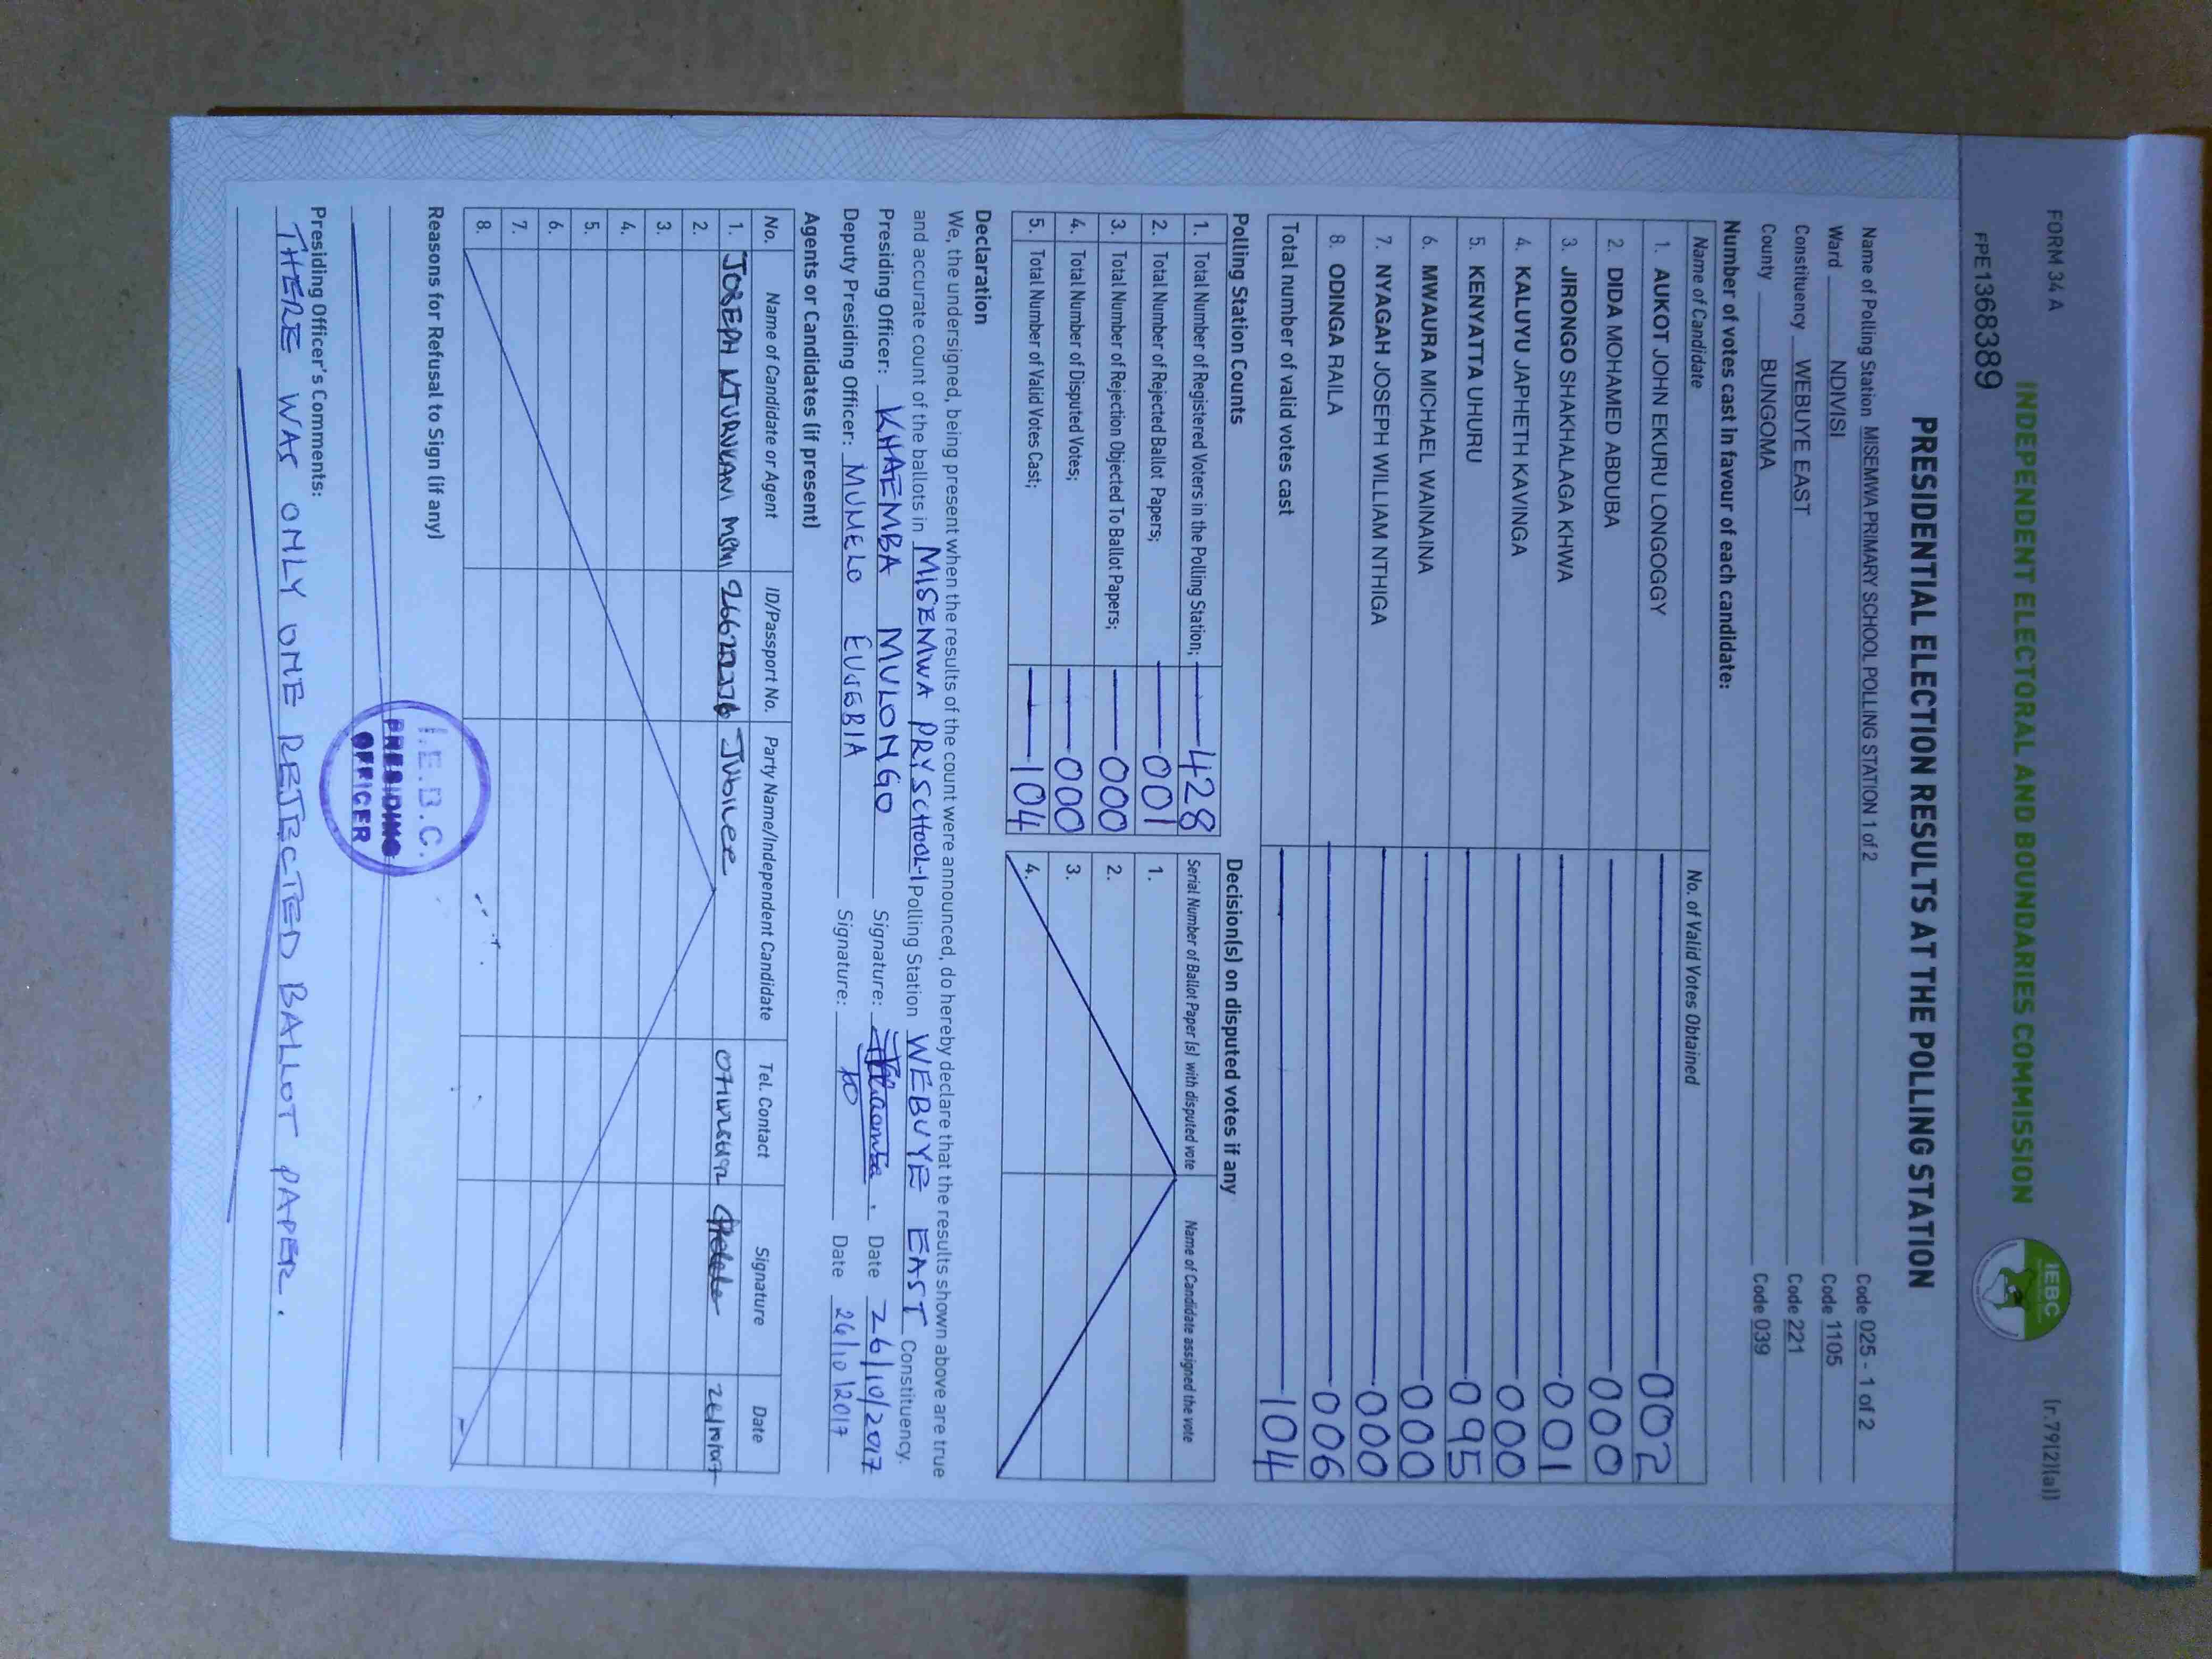 FORM 34 A
(r.79(2)(a))
INDEPENDENT ELECTORAL AND BOUNDARIES COMMISSION
IEBC
FPE1368389
PRESIDENTIAL ELECTION RESULTS AT THE POLLING STATION
Name of Polling Station MISEMWA PRIMARY SCHOOL POLLING STATION 1 of 2 Code 025 - 1 of 2
Ward NDIVISI Code 1105
Constituency WEBUYE EAST Code 221
County BUNGOMA Code 039
Number of votes cast in favour of each candidate:
Name of Candidate No. of Valid Votes Obtained
1. AUKOT JOHN EKURU LONGOGGY 002
2. DIDA MOHAMED ABDUBA 000
3. JIRONGO SHAKHALAGA KHWA 001
4. KALUYU JAPHETH KAVINGA 000
5. KENYATTA UHURU 095
6. MWAURA MICHAEL WAINAINA 000
7. NYAGAH JOSEPH WILLIAM NTHIGA 000
8. ODINGA RAILA 006
Total number of valid votes cast 104
Polling Station Counts
1. Total Number of Registered Voters in the Polling Station; 428
2. Total Number of Rejected Ballot Papers; 001
3. Total Number of Rejection Objected To Ballot Papers; 000
4. Total Number of Disputed Votes; 000
5. Total Number of Valid Votes Cast; 104
Decision(s) on disputed votes if any
Serial Number of Ballot Paper (s) with disputed vote Name of Candidate assigned the vote
1.
2.
3.
4.
Declaration
We, the undersigned, being present when the results of the count were announced, do hereby declare that the results shown above are true
and accurate count of the ballots in MISEMWA PRY SCHOOL-1 Polling Station WEBUYE EAST Constituency.
Presiding Officer: KHAEMBA MULONGO Signature: Date 26/10/2017
Deputy Presiding Officer: MUMELO EUSEBIA Signature: Date 26/10/2017
Agents or Candidates (if present)
No. Name of Candidate or Agent ID/Passport No. Party Name/Independent Candidate Tel. Contact Signature Date
1. JOSEPH Jubilee
2.
3.
4.
5.
6.
7.
8.
Reasons for Refusal to Sign (if any)
I.E.B.C.
PRESIDING
OFFICER
Presiding Officer's Comments:
THERE WAS ONLY ONE REJECTED BALLOT PAPER.